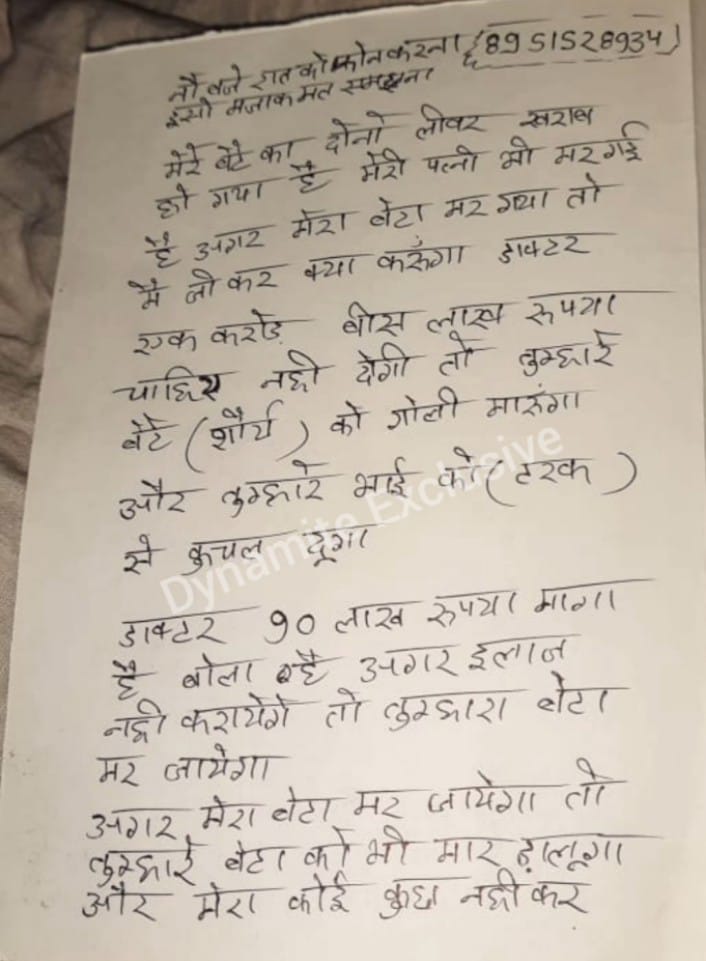 नौ बजे रात को फोन करना (8951528934)
इसो मजाक मत समझना
मेरे बेटे का दोनो लीवर खराब
हो गया है मेरी पत्नी भी मर गई
है अगर मेरा बेटा मर गया तो
मै जी कर क्या करूँगा डाक्टर
एक करोड़ बीस लाख रूपया
चाहिए नही देगी तो तुम्हारे
बेटे (शौर्य) को गोली मारुंगा
और तुम्हारे भाई को (टरक)
से कुचल दूगा
डाक्टर 90 लाख रूपया मागा
है बोला है अगर इलाज
नही करायेगे तो तुम्हारा बेटा
मर जायेगा
अगर मेरा बेटा मर जायेगा तो
तुम्हारे बेटा को भी मार डालूगा
और मेरा कोई कुछ नही कर
Dynamite Exclusive